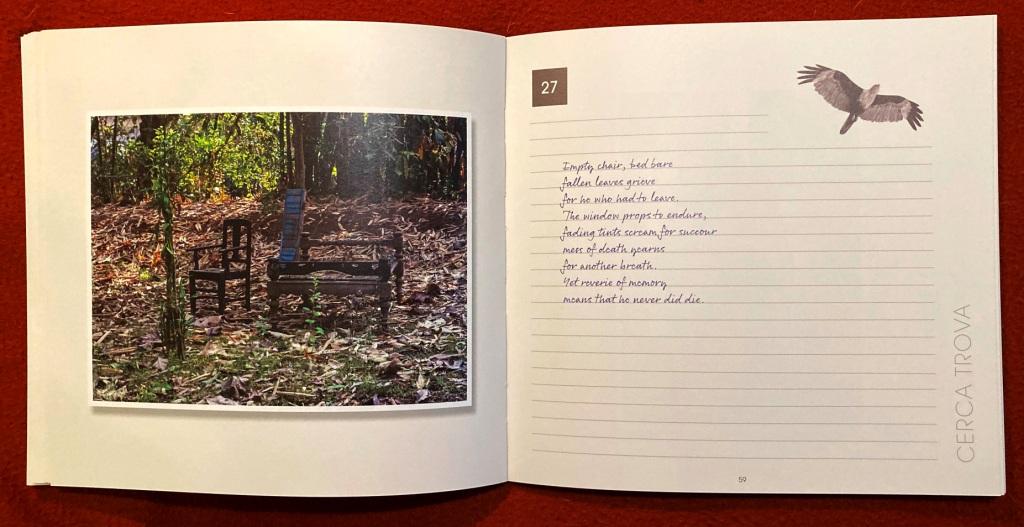 27
Empty chair, bed bare
fallen leaves grieve
for he who had to leave.
The window props to endure,
fading tints scream for succour
mees of death yearns
for another breath.
Yet reverie of memory
means that he never did die.
CERCA TROVA
59